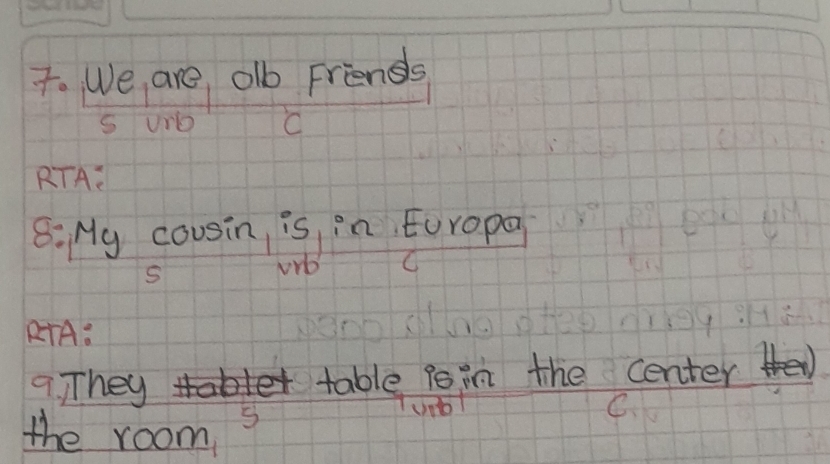 7. We are olb Friends
s vrb c
RTA:
8. My cousin is in Europa
s vrb c
RTA:
9. They tablet table is in the center the
s vrb c
the room